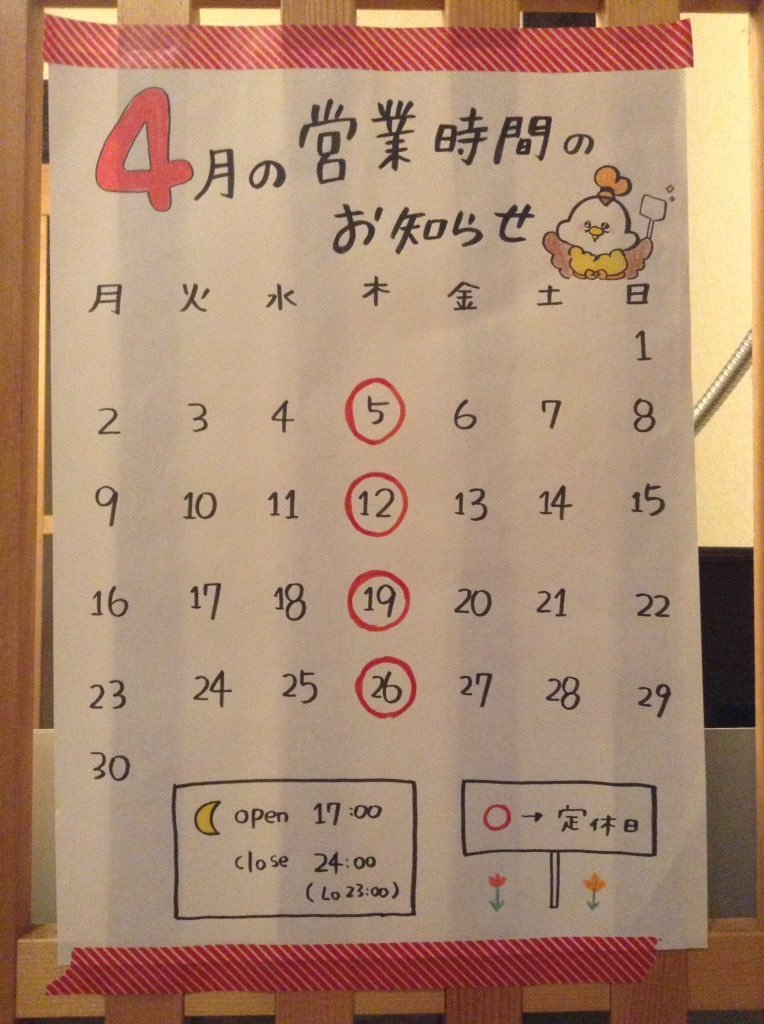 4月の営業時間の
お知らせ
月 火 水 木 金 土 日
1
2 3 4 5 6 7 8
9 10 11 12 13 14 15
16 17 18 19 20 21 22
23 24 25 26 27 28 29
30
open 17:00
close 24:00
(Lo 23:00)
○→定休日